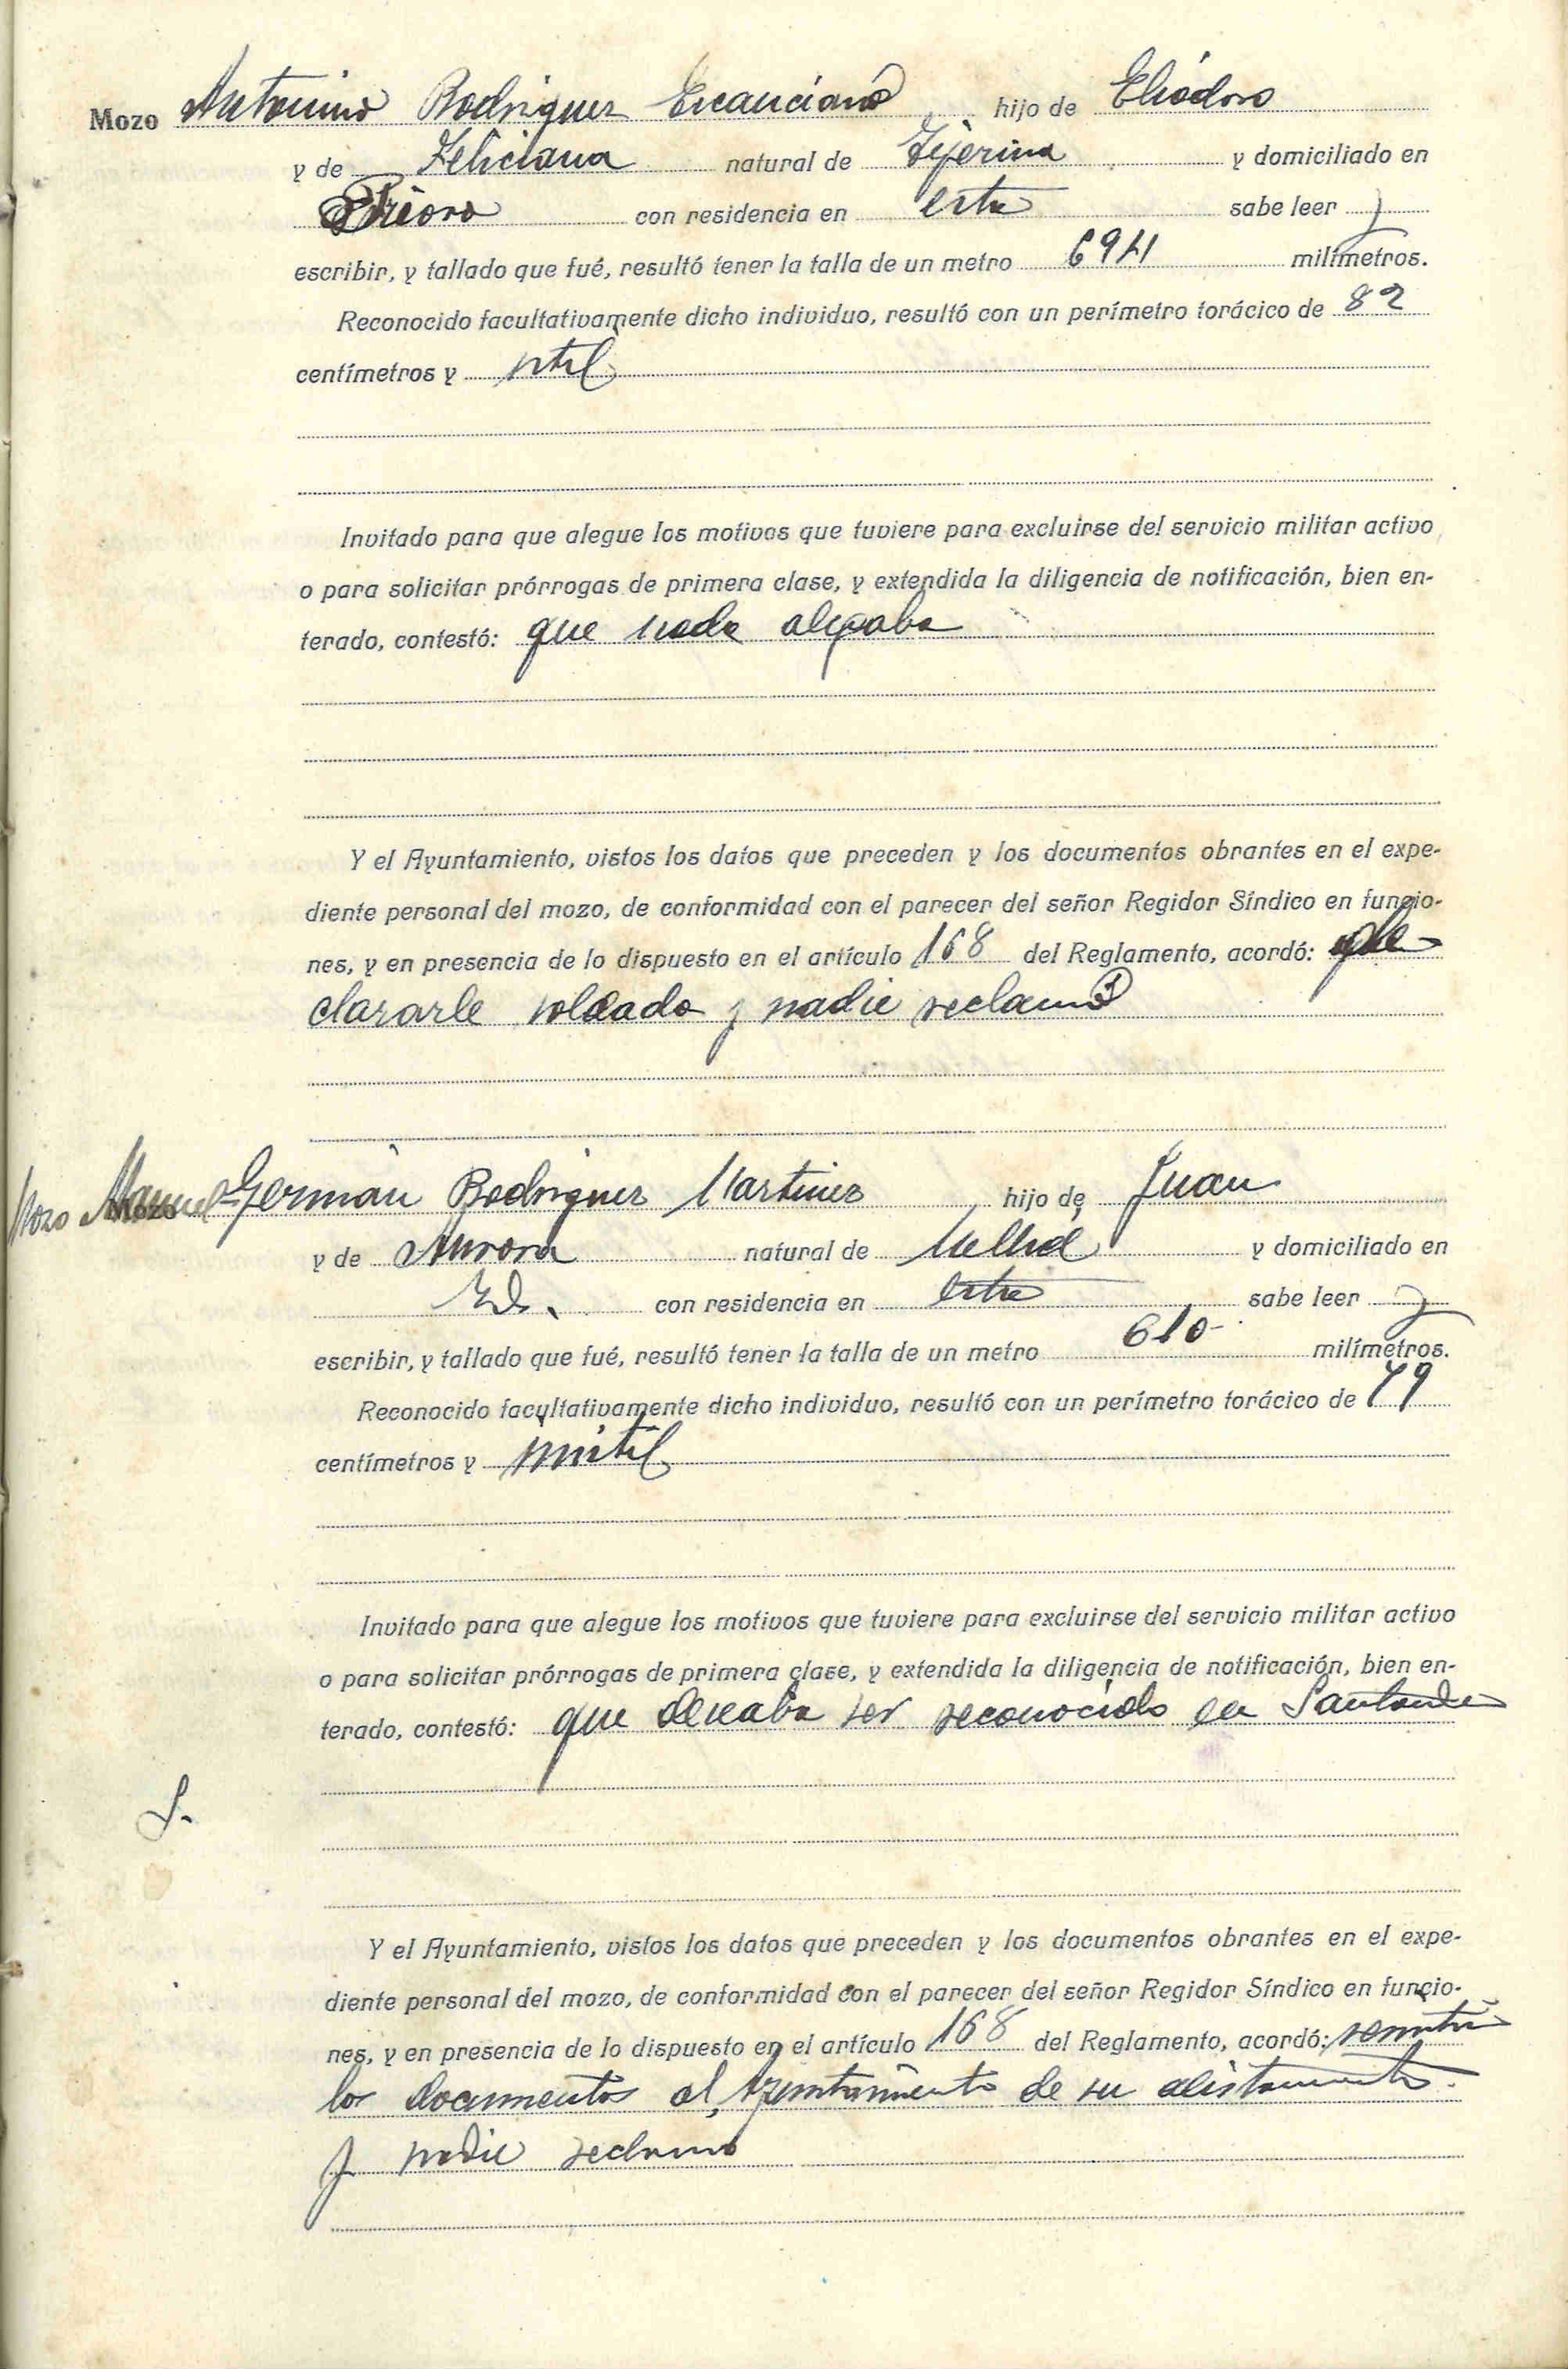 Mozo Antonino Rodriguez Escanciano hijo de Eliodoro
y de Feliciana natural de Tejerina y domiciliado en
Prioro con residencia en esta sabe leer y
escribir, y tallado que fué, resultó tener la talla de un metro 694 milímetros.
Reconocido facultativamente dicho individuo, resultó con un perímetro torácico de 82
centímetros y util
Invitado para que alegue los motivos que tuviere para excluirse del servicio militar activo
o para solicitar prórrogas de primera clase, y extendida la diligencia de notificación, bien en-
terado, contestó: que nada alegaba
Y el Ayuntamiento, vistos los datos que preceden y los documentos obrantes en el expe-
diente personal del mozo, de conformidad con el parecer del señor Regidor Síndico en funcio-
nes, y en presencia de lo dispuesto en el artículo 168 del Reglamento, acordó: de-
clararle soldado y nadie reclamó
Mozo Manuel German Rodriguez Martinez hijo de Juan
y de Aurora natural de y domiciliado en
Id. con residencia en esta sabe leer y
escribir, y tallado que fué, resultó tener la talla de un metro 610 milímetros.
Reconocido facultativamente dicho individuo, resultó con un perímetro torácico de 79
centímetros y inutil
Invitado para que alegue los motivos que tuviere para excluirse del servicio militar activo
o para solicitar prórrogas de primera clase, y extendida la diligencia de notificación, bien en-
terado, contestó: que deseaba ser reconocido en Santander
S.
Y el Ayuntamiento, vistos los datos que preceden y los documentos obrantes en el expe-
diente personal del mozo, de conformidad con el parecer del señor Regidor Síndico en funcio-
nes, y en presencia de lo dispuesto en el artículo 168 del Reglamento, acordó: remitir
los documentos al Ayuntamiento de su alistamiento.
y nadie reclamo